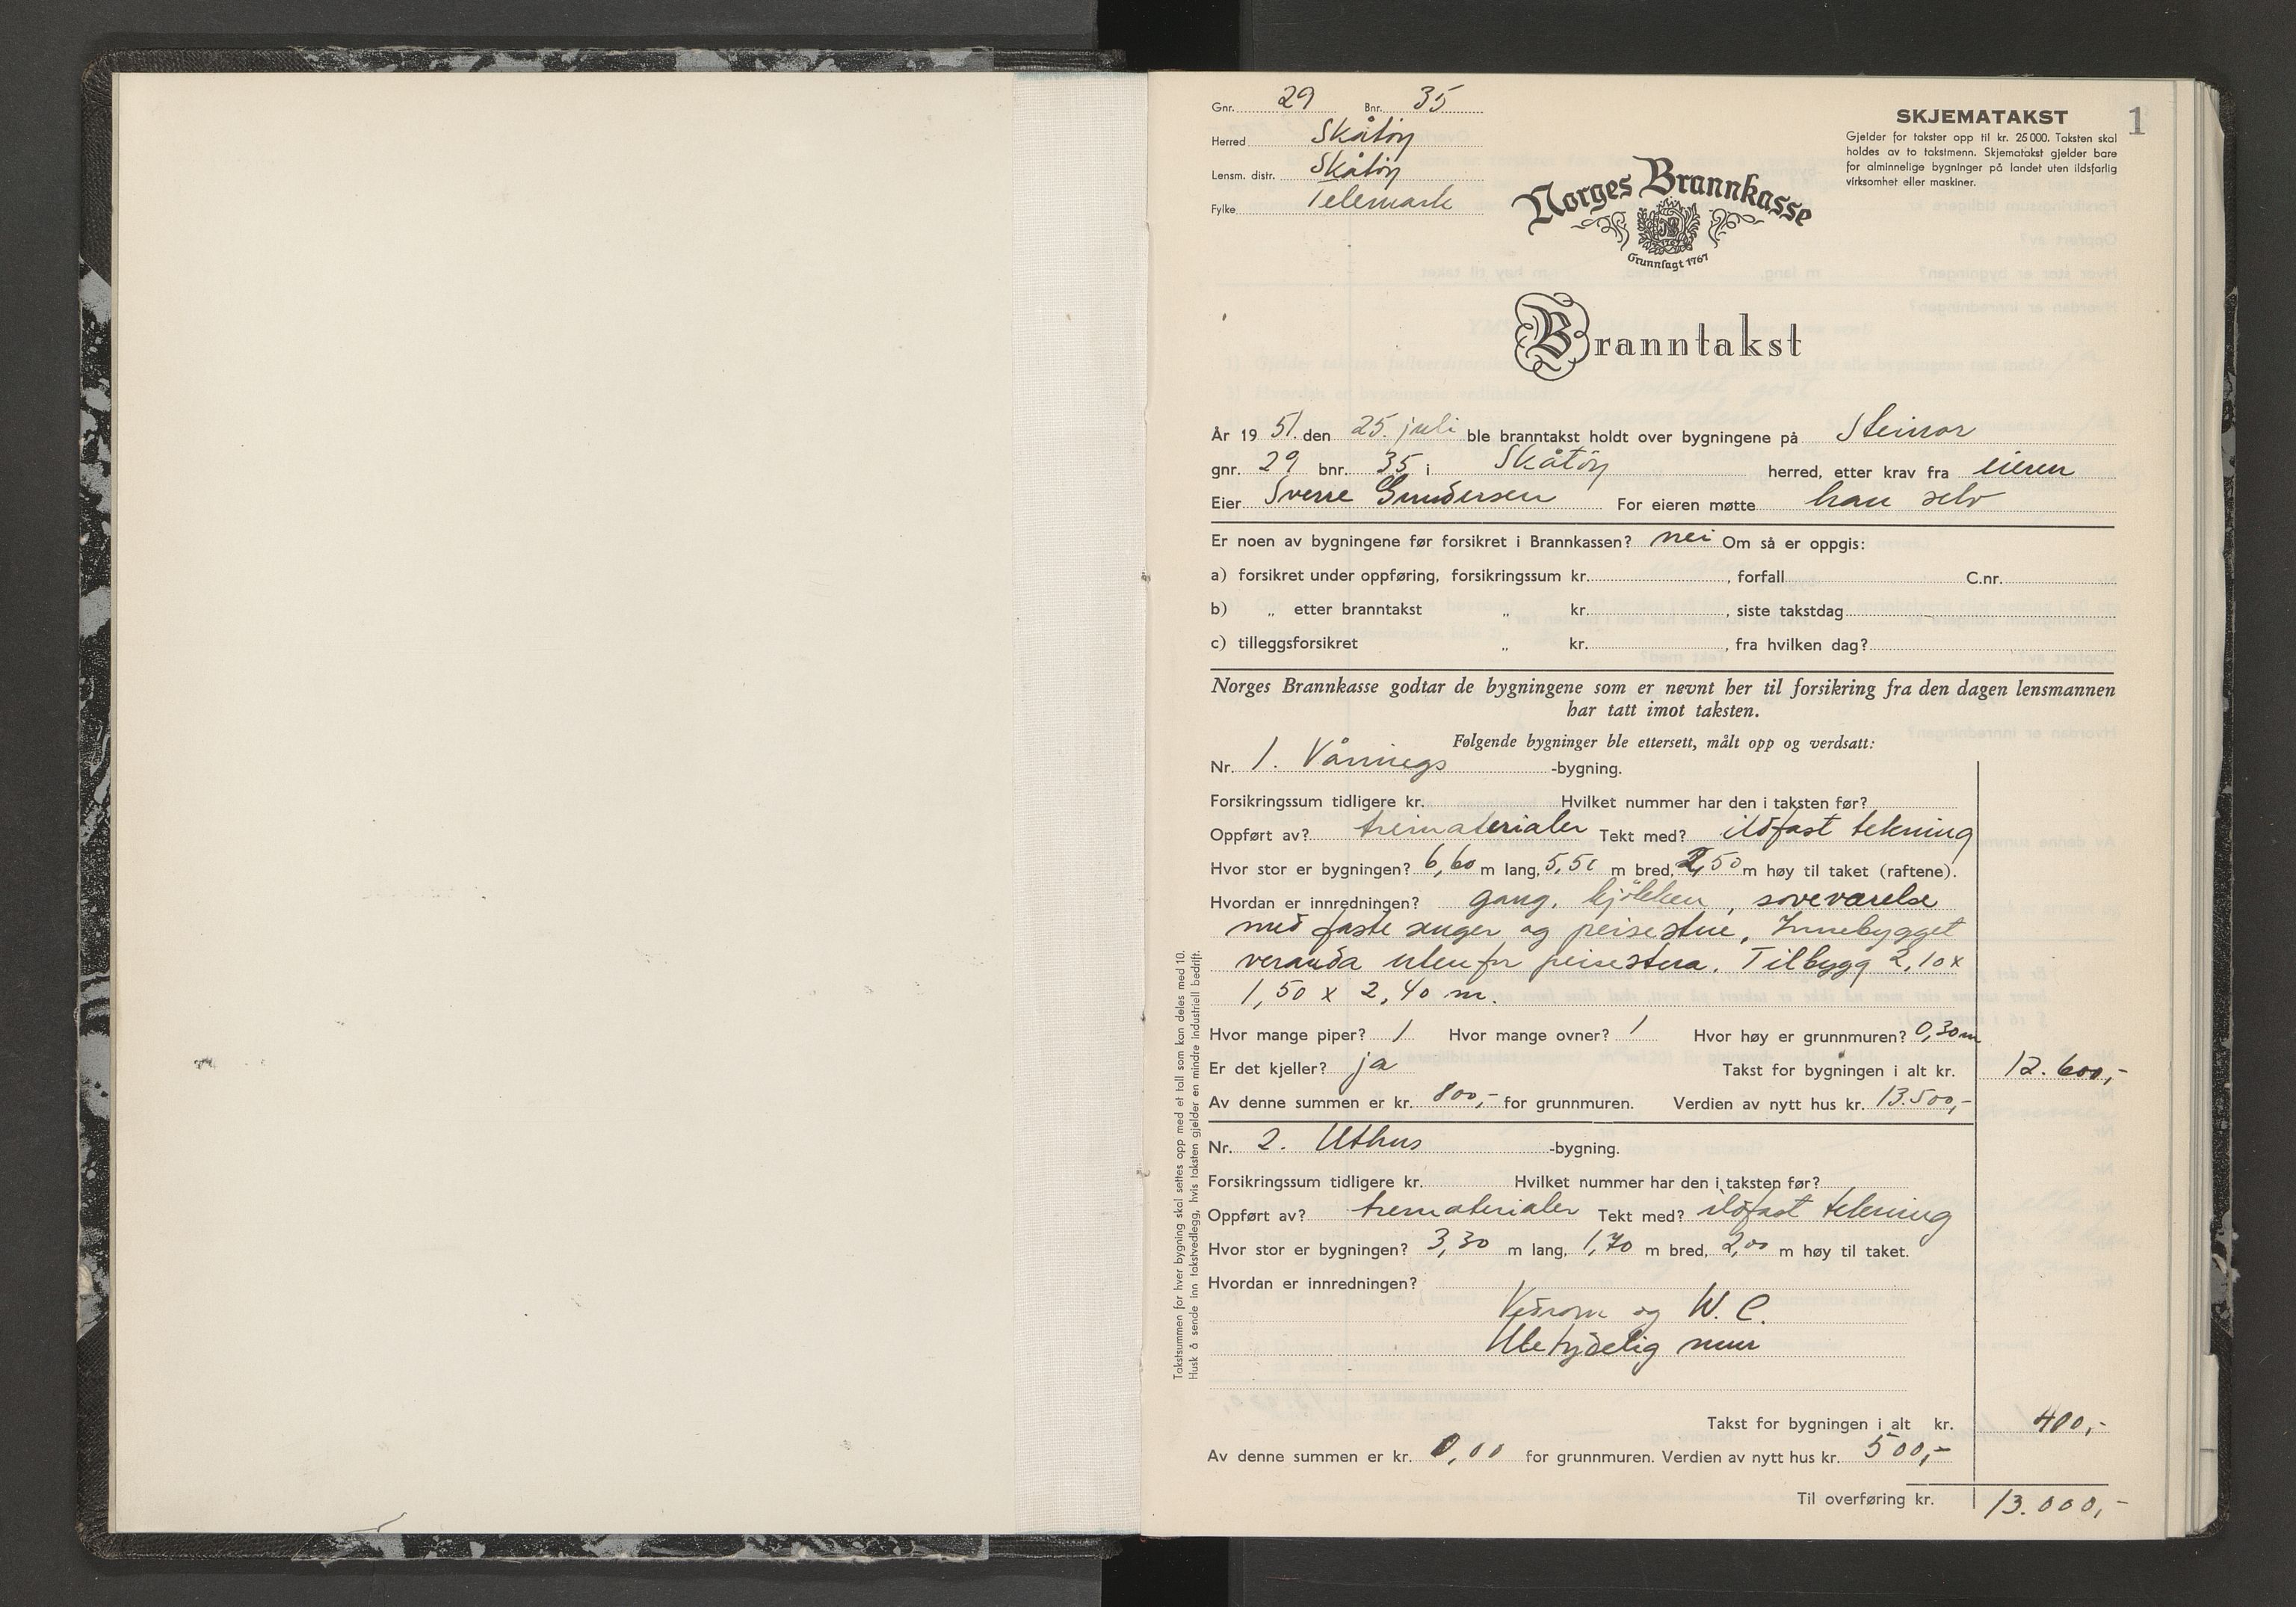 Gnr. 29 Bnr. 35
Herred Skåtøy
Lensm. distr. Skåtøy
Fylke Telemark
SKJEMATAKST 1
Gjelder for takster opp til kr. 25 000. Taksten skal
holdes av to takstmenn. Skjematakst gjelder bare
for alminnelige bygninger på landet uten ildsfarlig
virksomhet eller maskiner.
Norges Brannkasse
NB
Grunnlagt 1767
Branntakst
År 1951. den 25. juli ble branntakst holdt over bygningene på Steinar
gnr. 29 bnr. 35 i Skåtøy herred, etter krav fra eieren
Eier Sverre Gundersen For eieren møtte han selv
Er noen av bygningene før forsikret i Brannkassen? nei Om så er oppgis:
a) forsikret under oppføring, forsikringssum kr. , forfall C.nr.
b) „ etter branntakst „ kr. , siste takstdag
c) tilleggsforsikret „ kr. , fra hvilken dag?
Norges Brannkasse godtar de bygningene som er nevnt her til forsikring fra den dagen lensmannen
har tatt imot taksten.
Følgende bygninger ble ettersett, målt opp og verdsatt:
Nr. 1. Vånings -bygning.
Forsikringssum tidligere kr. Hvilket nummer har den i taksten før?
Oppført av? treimaterialer Tekt med? ildfast tekning
Hvor stor er bygningen? 6,60 m lang, 5,50 m bred, 2,50 m høy til taket (raftene).
Hvordan er innredningen? gang, kjökken, soveværelse
med faste senger og peisestue, Innebygget
veranda utenfor peisestua. Tilbygg 2,10 x
1,50 x 2,40 m.
Hvor mange piper? 1 Hvor mange ovner? 1 Hvor høy er grunnmuren? 0,30 m
Er det kjeller? ja Takst for bygningen i alt kr. 12.600,-
Av denne summen er kr. 800,- for grunnmuren. Verdien av nytt hus kr. 13.500,-
Nr. 2. Uthus -bygning.
Forsikringssum tidligere kr. Hvilket nummer har den i taksten før?
Oppført av? trematerialer Tekt med? ildfast tekning
Hvor stor er bygningen? 3,30 m lang, 1,70 m bred, 2,00 m høy til taket.
Hvordan er innredningen?
Vedrom og W.C.
Ubetydelig mur
Takst for bygningen i alt kr. 400,-
Av denne summen er kr. 0,00 for grunnmuren. Verdien av nytt hus kr. 500,-
Til overføring kr. 13.000,-
Takstsummen for hver bygning skal settes opp med et tall som kan deles med 10.
Husk å sende inn takstvedlegg, hvis taksten gjelder en mindre industriell bedrift.